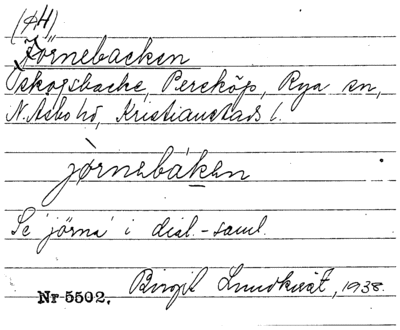 (AH)
Jörnebacken
skogsbacke, Perstorp, Rya sn,
N. Åsbo hd, Kristianstads l.
jörnebáken
Se 'jörna' i dial.-saml.
Nr 5502. Birgit Lundkvist, 1938.